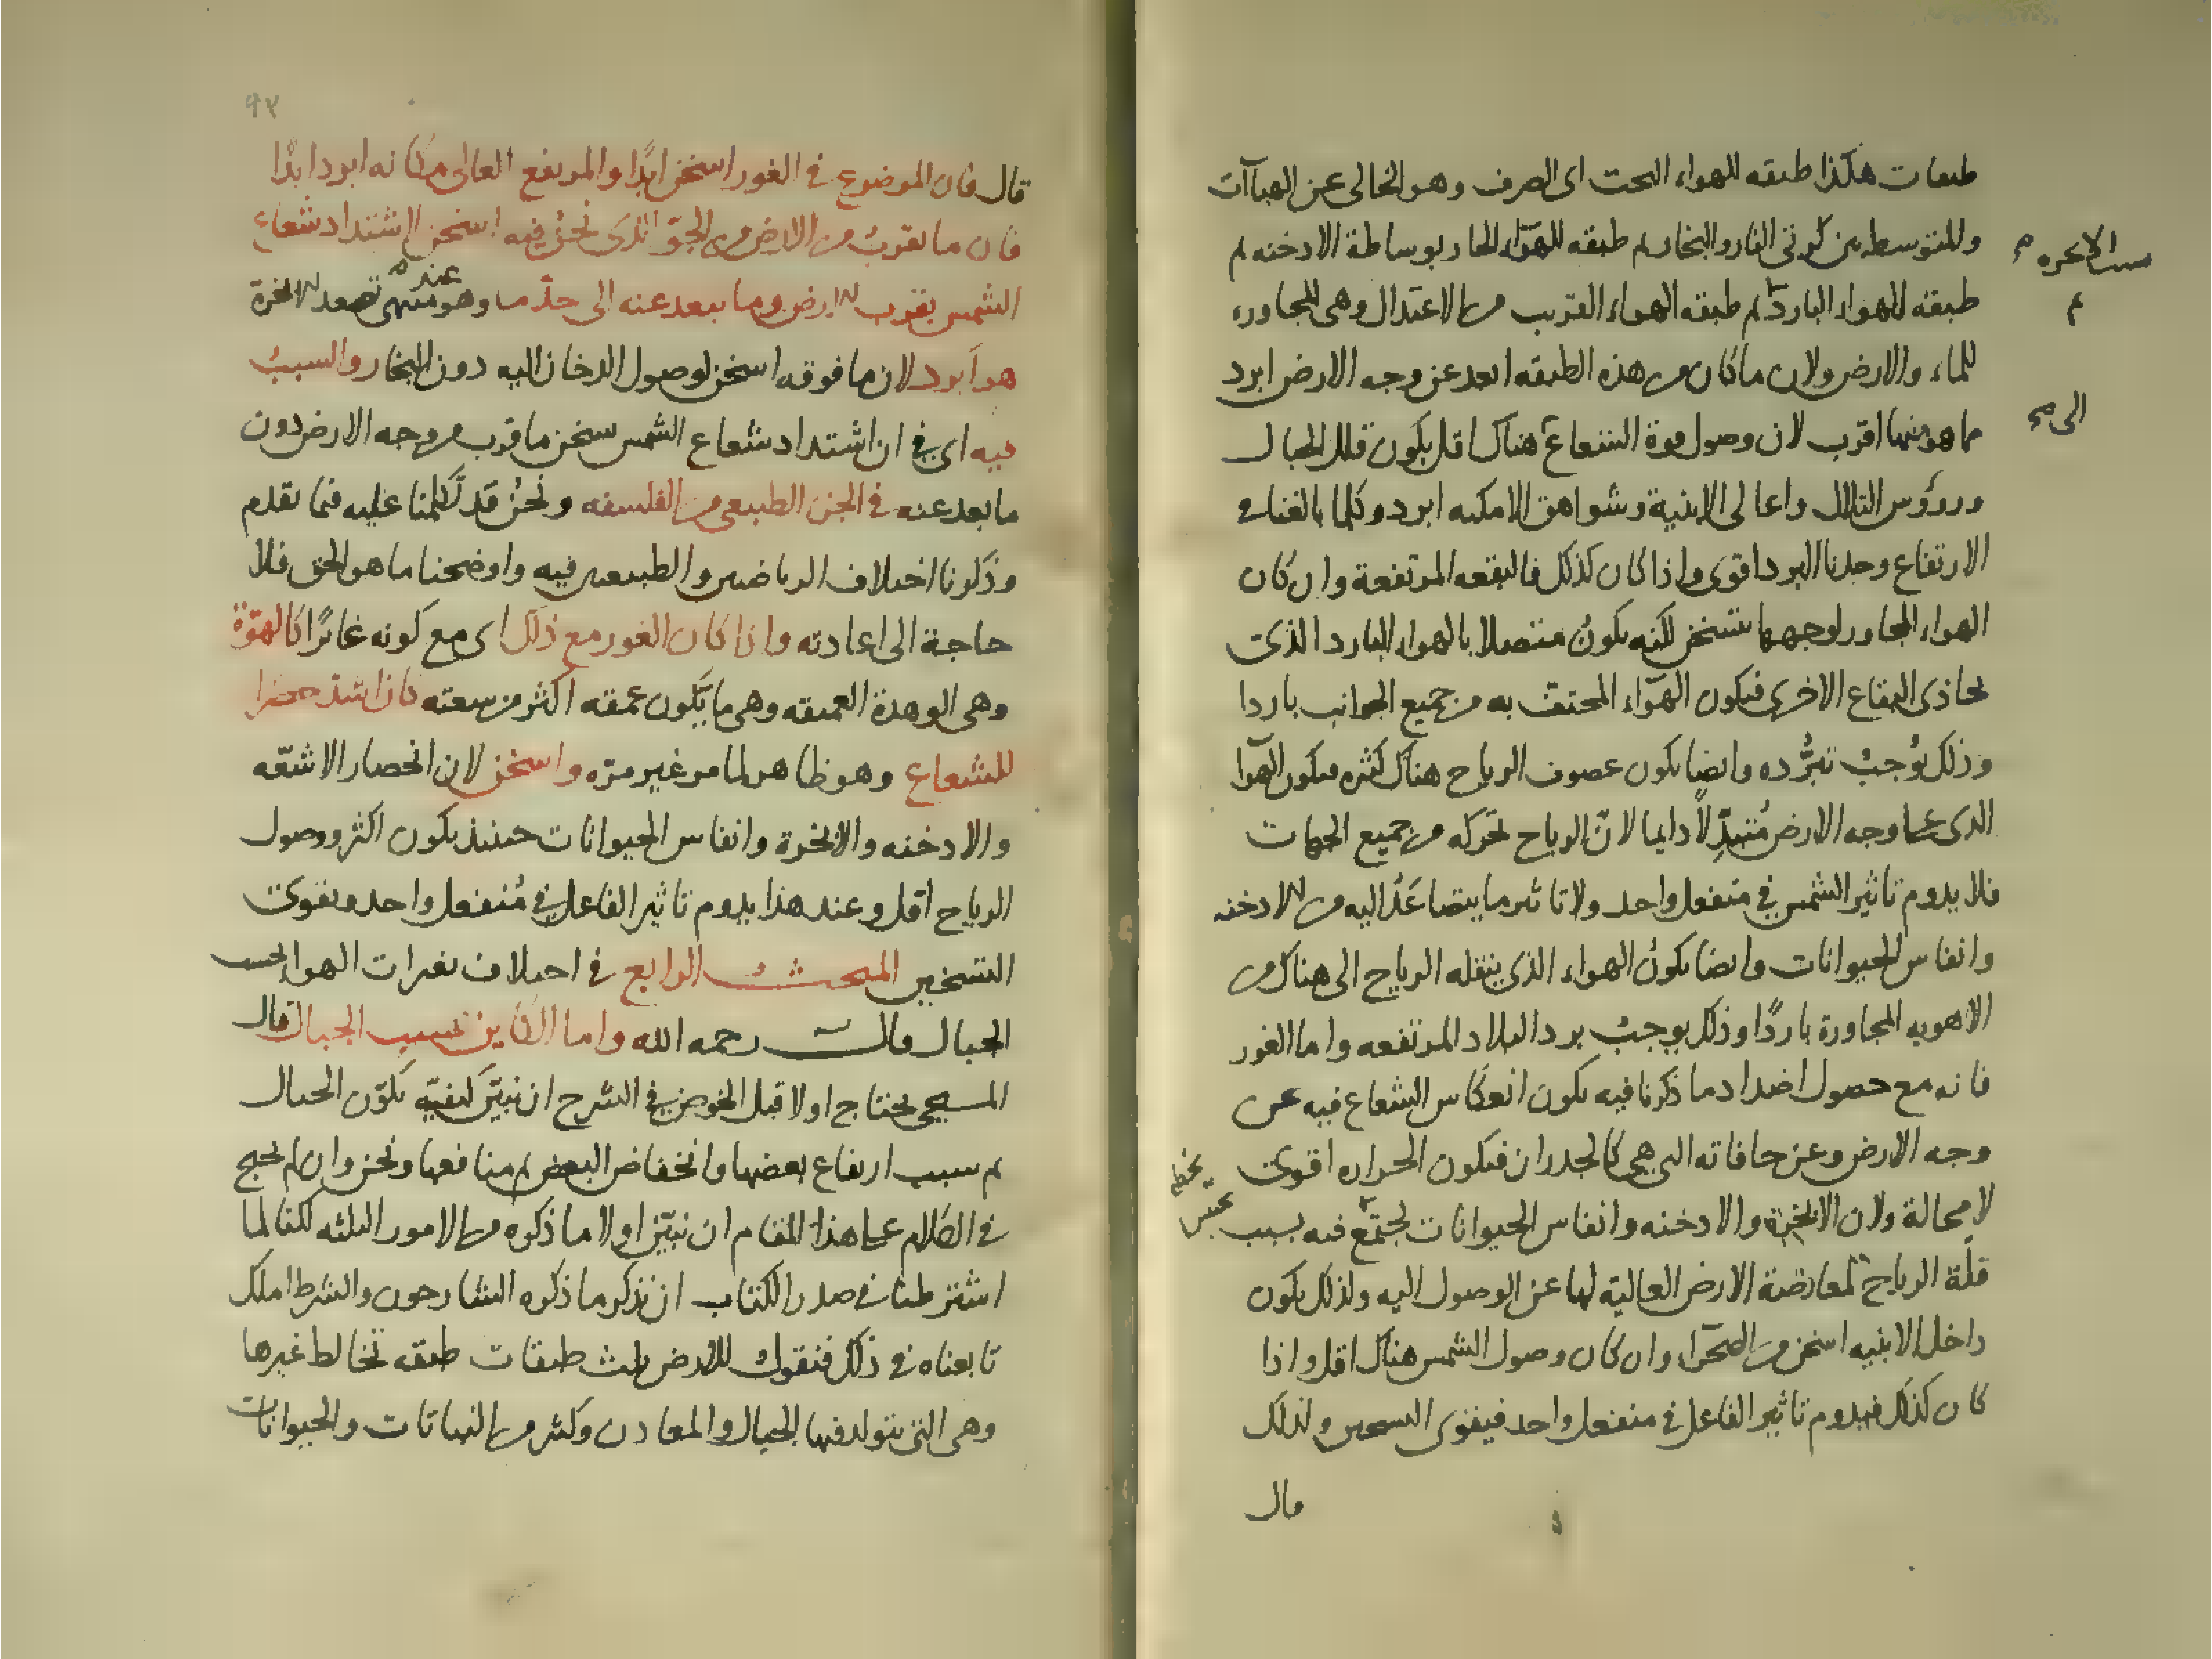 طبقات هكذا طبقه للهواء البحت اى الصرف وهو الخالى عن الهباآت
وللمتوسط بين كرتى النار والبخار ثم طبقه للهواء الحار بوساطة الادخنه ثم
بسبب الابخره
طبقه للهواء البارد ثم طبقه الهواء القريب من الاعتدال وهى المجاوره
للماء والارض ولان ما كان من هذه الطبقه ابعد عن وجه الارض ابرد
مما هو منها اقرب لان وصول قوة الشعاع هناك اقل يكون قلل الجبال
الى
ورؤوس التلال واعالى الابنية وشواهق الامكنه ابرد وكلما بالغنا فى
الارتفاع وجدنا البرد اقوى واذا كان كذلك فالبقعه المرتفعة وان كان
الهواء المجاور لوجهها يتسخن لكنه يكون متصلا بالهواء البارد الذى
يحاذى البقاع الاخرى فيكون الهواء المحتف به من جميع الجوانب باردا
وذلك يوجب تبرده وايضا يكون عصوف الرياح هناك كثيره فيكون الهوا
الذى على وجه الارض متبدلا دايما لان الرياح تحركه من جميع الجهات
فلا يدوم تاثير الشمس فى منفعل واحد ولا تاثير ما يتصاعد اليه من الادخنه
وانفاس الحيوانات وايضا يكون الهواء الذى ينقله الرياح الى هناك من
الاهويه المجاورة باردا وذلك يوجب برد البلاد المرتفعه واما الغور
فانه مع حصول اضداد ما ذكرنا فيه يكون انعكاس الشعاع فيه عن
وجه الارض وعن حافاته التى هى كالجدران فيكون الحراره اقوى
لا محالة ولان الابخرة والادخنه وانفاس الحيوانات تجتمع فيه بسبب
قلة الرياح لمعارضة الارض العالية لها عن الوصول اليه ولذلك يكون
داخل الابنيه اسخن من الصحراء وان كان وصول الشمس هناك اقل واذا
كان كذلك فيدوم تاثير الفاعل فى منفعل واحد فيقوى التسخين ولذلك
قال
٩٢
قال فان الموضوع فى الغور اسخن ابدا والمرتفع العالى مكانه ابرد ابدا
فان ما يقرب من الارض من الجو الذى نحن فيه اسخن لاشتداد شعاع
الشمس بقرب الارض وما يبعد عنه الى حد ما وهو عند منتهى تصعد الابخرة
هو ابرد لان ما فوقه اسخن لوصول الدخان اليه دون البخار والسبب
فيه اى فى ان اشتداد شعاع الشمس سخن ما قرب من وجه الارض دون
ما بعد عنه فى الجزء الطبيعى من الفلسفه ونحن قد تكلمنا عليه فيما تقدم
وذكرنا اختلاف الرياضيين والطبيعيين فيه واوضحنا ما هو الحق فلا
حاجة الى اعادته واذا كان الغور مع ذلك اى مع كونه غائرا كالهوة
وهى الوهدة العميقه وهى ما يكون عمقه اكثر من سعته كان اشد حصرا
للشعاع وهو ظاهر لما مر غير مره واسخن لان انحصار الاشعه
والادخنه والابخرة وانفاس الحيوانات حينئذ يكون اكثر ووصول
الرياح اقل وعند هذا يدوم تاثير الفاعل فى منفعل واحد ويقوى
التسخين المبحث الرابع فى اختلاف تغيرات الهواء بحسب
الجبال قال رحمه الله واما الكاين بسبب الجبال قال
المسيحى يحتاج اولا قبل الخوض فى الشرح ان نبين كيفية تكون الجبال
ثم سبب ارتفاع بعضها وانخفاض البعض ثم منافعها ونحن وان لم نحتج
فى الكلام على هذا المقام ان نبين اولا ما ذكره من الامور الثلثه لكنا لما
اشترطنا فى صدر الكتاب ان نذكر ما ذكره الشارحون والشرط املك
تابعناه فى ذلك فنقول للارض ثلث طبقات طبقه تخالط غيرها
وهى التى يتولد فيها الجبال والمعادن وكثير من النباتات والحيوانات